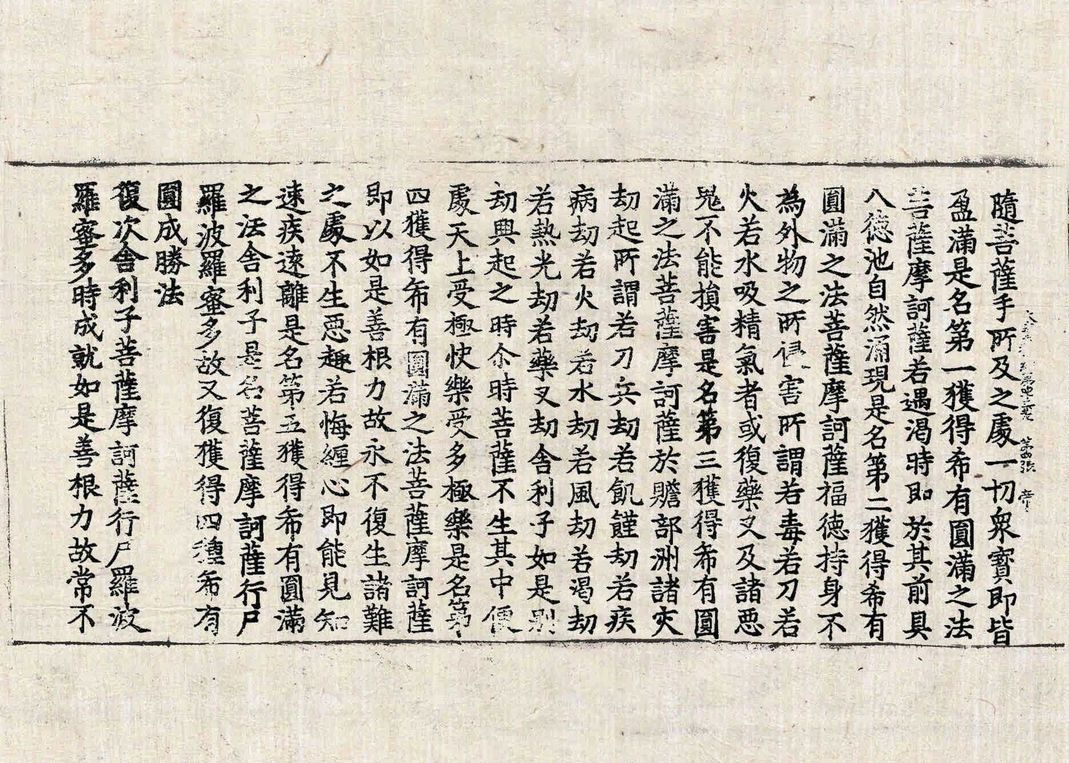 隨菩薩手所及之處一切衆寳即皆
盈滿是名第一獲得希有圓滿之法
菩薩摩訶薩若遇渴時即於其前具
八德池自然涌現是名第二獲得希有
圓滿之法菩薩摩訶薩福德持身不
為外物之所侵害所謂若毒若刀若
火若水吸精氣者或復藥叉及諸惡
鬼不能損害是名第三獲得希有圓
滿之法菩薩摩訶薩於贍部洲諸灾
劫起所謂若刀兵劫若飢饉劫若疾
病劫若火劫若水劫若風劫若渴劫
若熱光劫若藥叉劫舍利子如是別
劫興起之時尒時菩薩不生其中便
處天上受極快樂受多極樂是名第
四獲得希有圓滿之法菩薩摩訶薩
即以如是善根力故永不復生諸難
之處不生惡趣若悔纏心即能見知
速疾遠離是名第五獲得希有圓滿
之法舍利子是名菩薩摩訶薩行尸
羅波羅蜜多故又復獲得四種希有
圓成勝法
復次舍利子菩薩摩訶薩行尸羅波
羅蜜多時成就如是善根力故常不